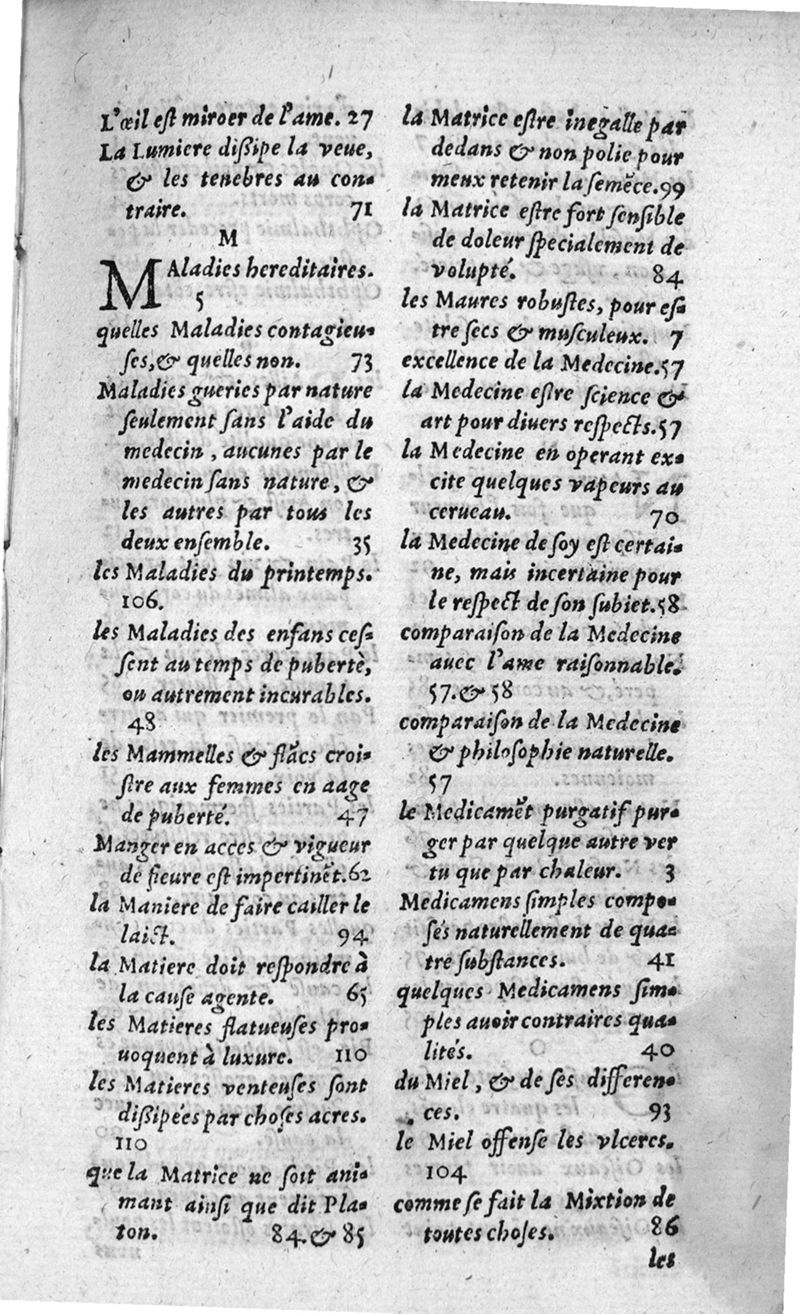 L'œil est miroer de l'ame. 27
La Lumiere dißipe la veue,
& les tenebres au con-
traire. 71
M
MAladies hereditaires.
5
quelles Maladies contagieu-
ses,& quelles non. 73
Maladies gueries par nature
seulement sans l'aide du
medecin, aucunes par le
medecin sans nature, &
les autres par tous les
deux ensemble. 35
les Maladies du printemps.
106.
les Maladies des enfans ces-
sent au temps de pubertè,
ou autrement incurables.
48
les Mammelles & flãcs croi-
stre aux femmes en aage
de puberté. 47
Manger en acces & vigueur
de fieure est impertinẽt.62
la Maniere de faire cailler le
laict. 94
la Matiere doit respondre à
la cause agente. 65
les Matieres flatueuses pro-
uoquent à luxure. 110
les Matieres venteuses sont
dißipées par choses acres.
110
que la Matrice ne soit ani-
mant ainsi que dit Pla-
ton. 84.& 85
la Matrice estre inegalle par
dedans & non polie pour
meux retenir la semẽce.99
la Matrice estre fort sensible
de doleur specialement de
volupté. 84
les Maures robustes, pour es-
tre secs & musculeux. 7
excellence de la Medecine.57
la Medecine estre science &
art pour diuers respects.57
la Medecine en operant ex-
cite quelques vapeurs au
cerueau. 70
la Medecine de soy est certai-
ne, mais incertaine pour
le respect de son subiet.58
comparaison de la Medecine
auec l'ame raisonnable.
57.& 58
comparaison de la Medecine
& philosophie naturelle.
57
le Medicamẽt purgatif pur-
ger par quelque autre ver
tu que par chaleur. 3
Medicamens simples compo-
sés naturellement de qua-
tre substances. 41
quelques Medicamens sim-
ples auoir contraires qua-
lités. 40
du Miel, & de ses differen-
ces. 93
le Miel offense les vlceres.
104
comme se fait la Mixtion de
toutes choses. 86
les